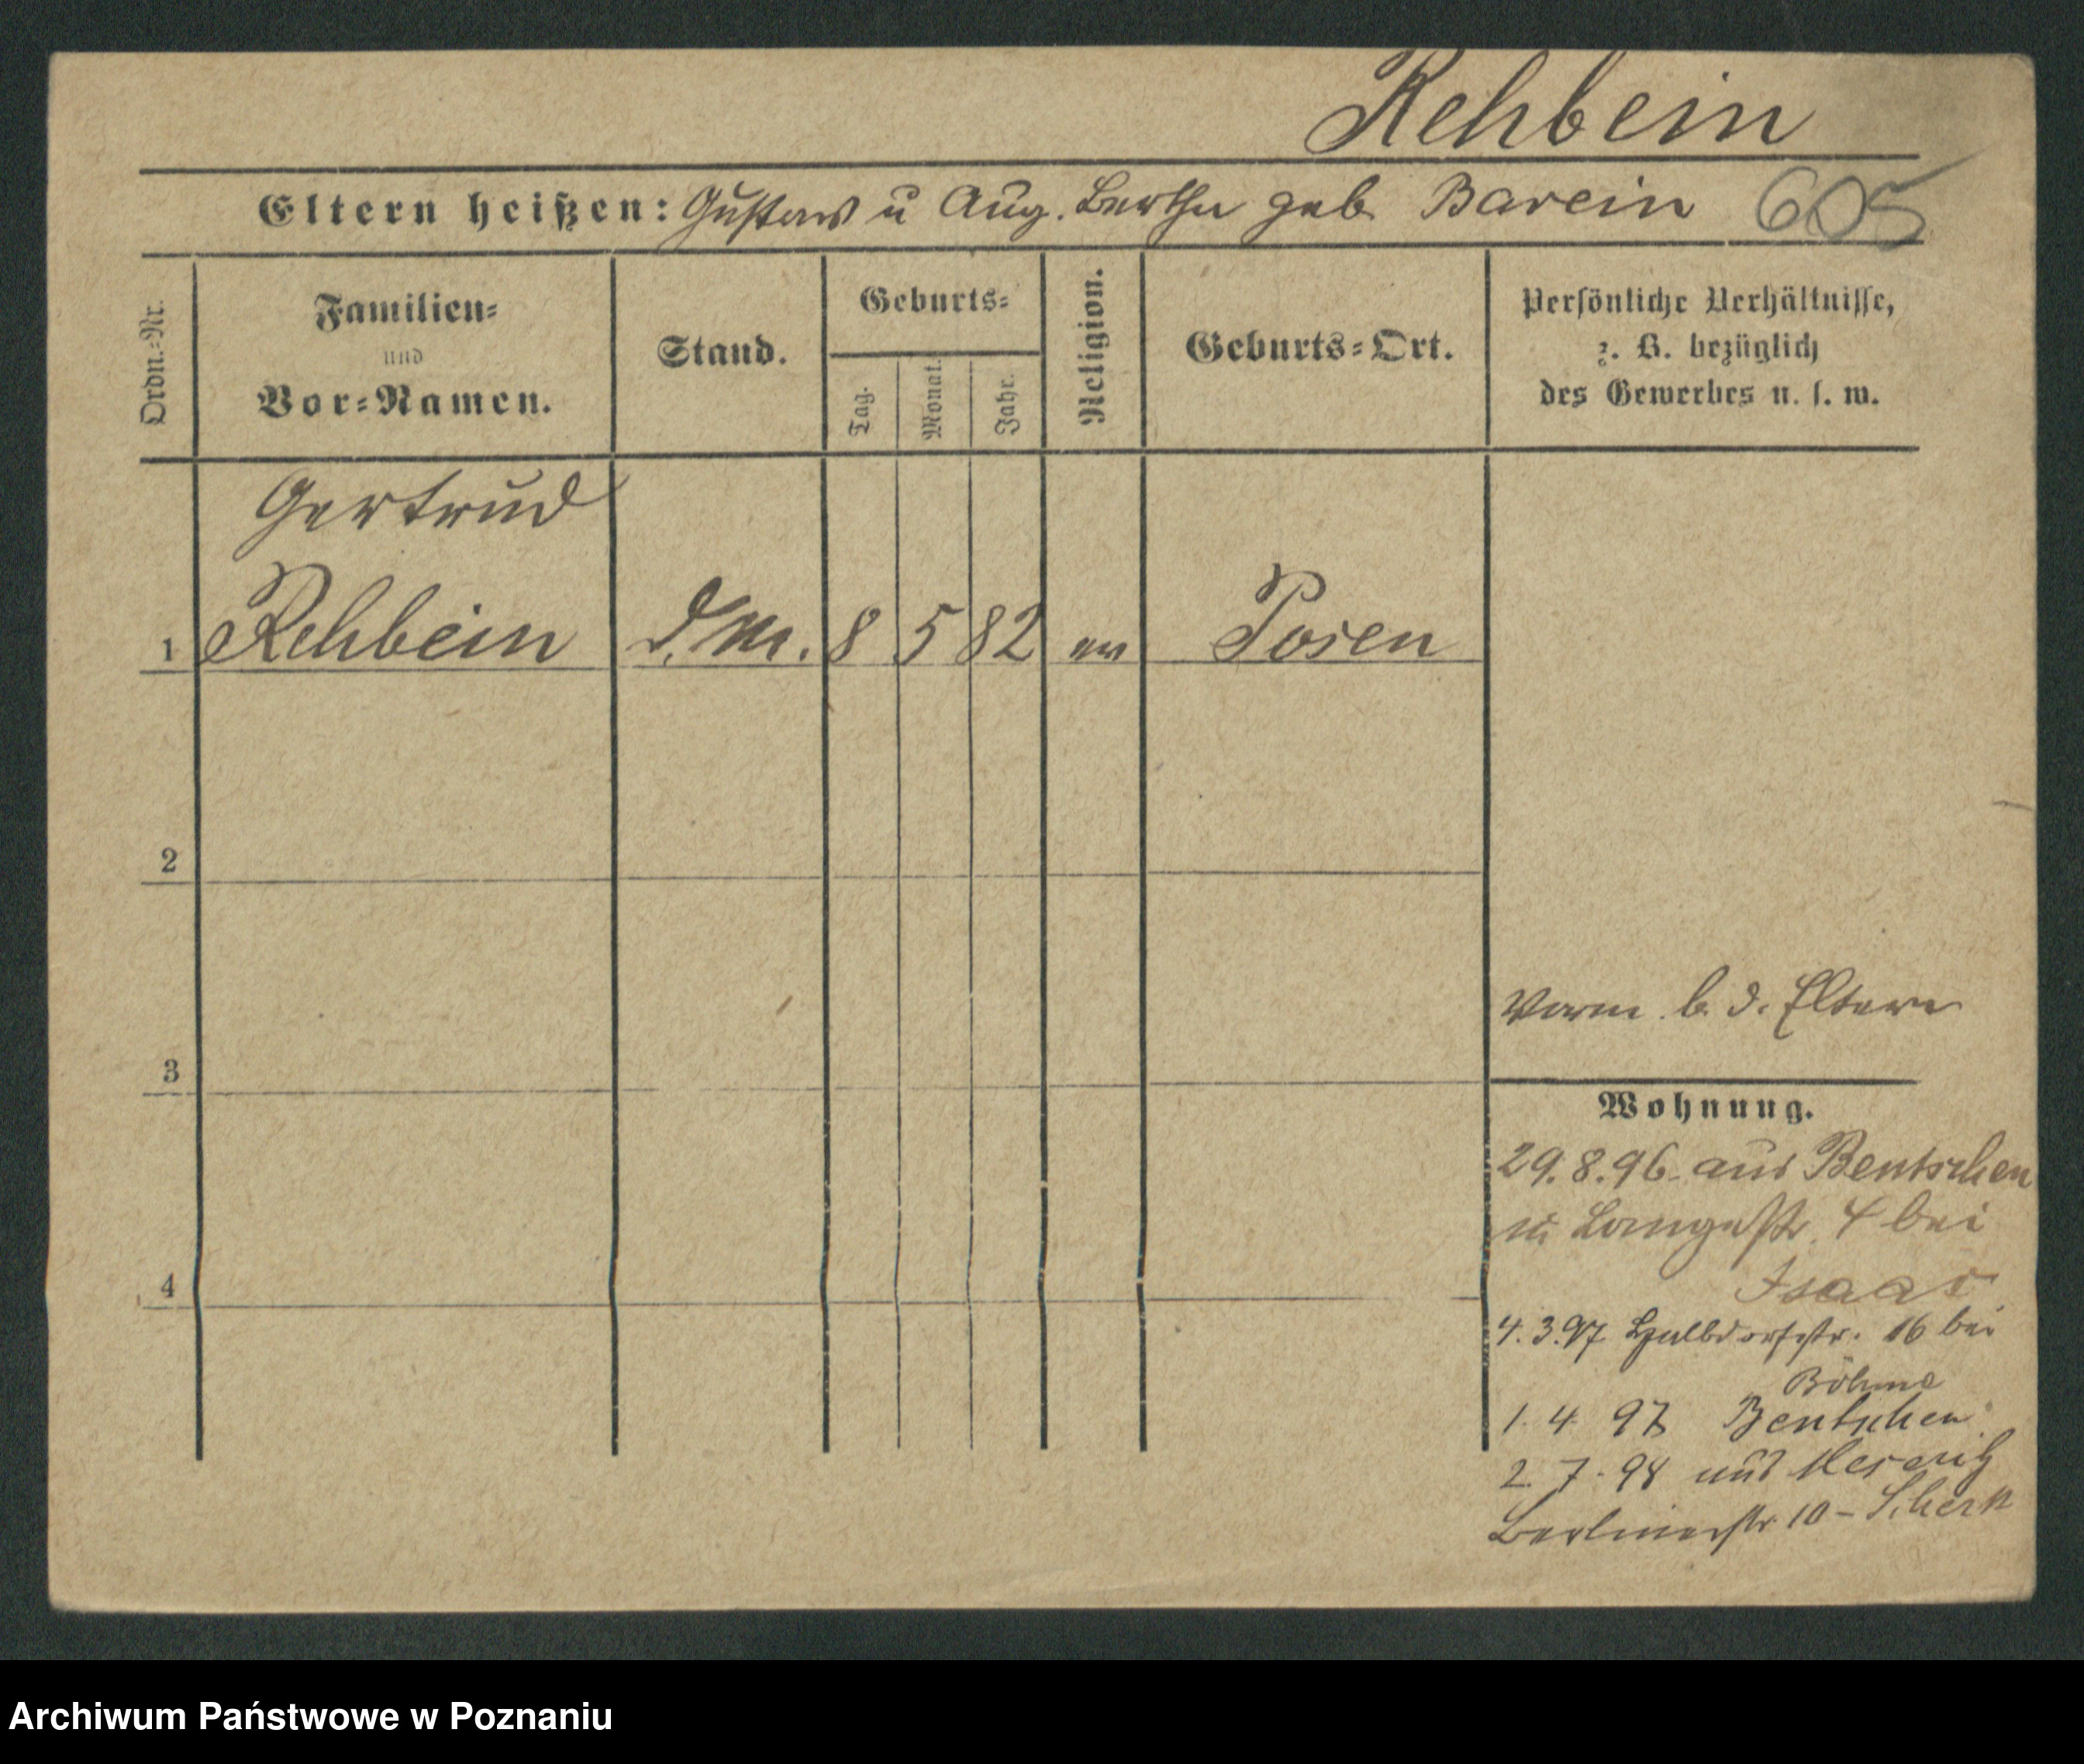 Rehbein
Eltern heißen: Gustav u Aug. Bertha geb. Barein 605
Ordn.-Nr.
Familien-
und
Vor-Namen.
Stand.
Geburts-
Tag.
Monat.
Jahr.
Religion.
Geburts-Ort.
Persönliche Verhältnisse,
z. B. bezüglich
des Gewerbes u. s. w.
Gertrud
1 Rehbein d. M. 8 5 82 ev Posen
2
3
4
Vorm. b. d. Eltern
Wohnung.
29.8.96. aus Bentschen
n. Langestr. 4 bei
Isaac
4.3.97 Halbdorfstr. 16 bei
Böhme
1. 4. 97 Bentschen
2. 7. 98 aus Meseritz
Berlinerstr. 10 – Scherk
Archiwum Państwowe w Poznaniu